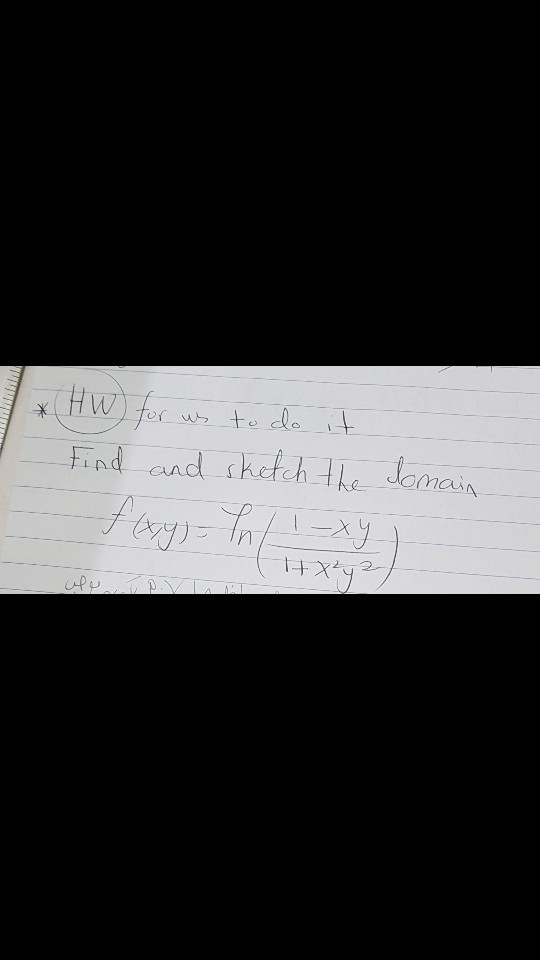 * HW for us to do it
Find and sketch the domain
f(x,y) = ln(1-xy / 1+x²y²)